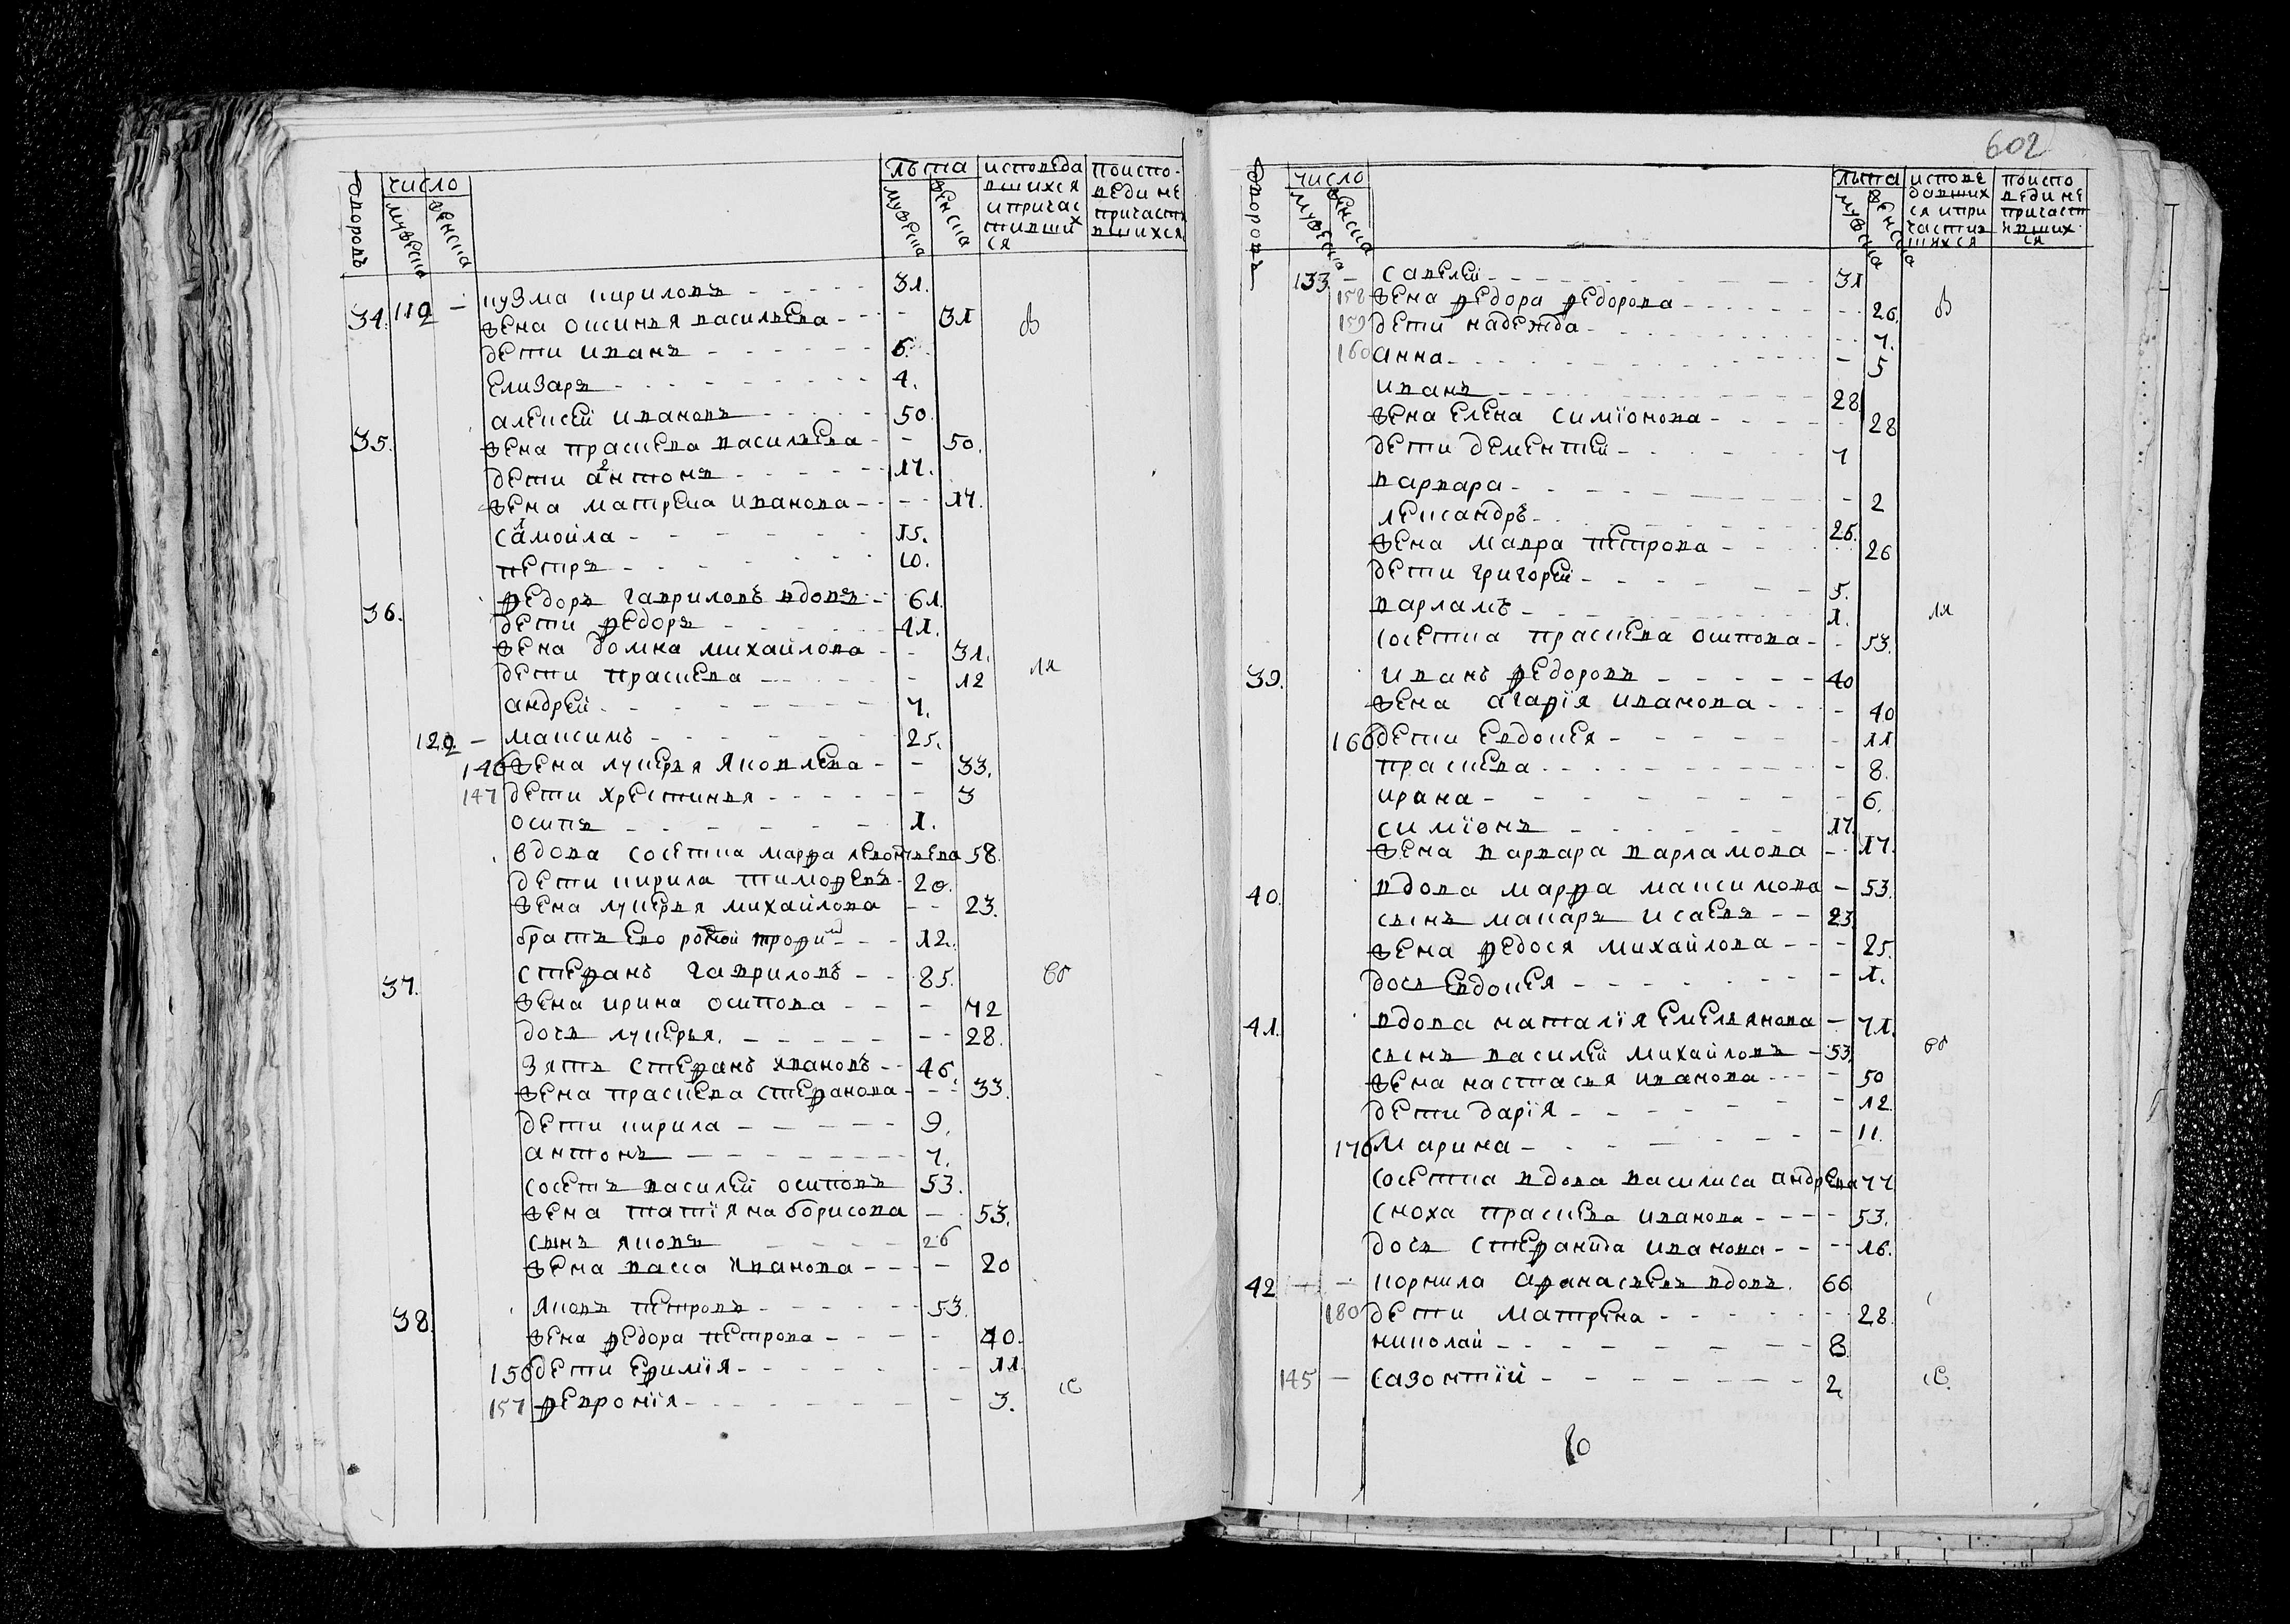 дворовъ
число
мужеска
женска
лѣта
мужеска
женска
исповеда
вшихся
и причас
тивших
ся
поиспо-
веди не
причасти
вшихся
34. 119 — кузма кириловъ - - - - - 31.
жена оксинья васильева - - - - 31
дети иванъ - - - - - - 6.
елизаръ - - - - - - - - 4.
35. алексей ивановъ - - - - - 50.
жена праскева васильева - - 50.
дети антонъ 2 - - - - - - 17.
жена матрена иванова - - - - 17.
самойла 1 - - - - - - - 15.
петръ - - - - - - - 10.
36. федоръ гавриловъ вдовъ - 61.
дети федоръ - - - - - - 41.
жена домна михайлова - - 31.
дети праскева - - - - - - 12
андрей - - - - - - - - 7.
129 — максимъ - - - - - - - 25.
146 жена лукерья яковлева - - 33.
147 дети христинья - - - - - - 3
осипъ - - - - - - - 1.
вдова соседка марфа левонтьева 58.
дети кирила тимофеевъ - 20.
жена лукерья михайлова - - 23.
братъ его родной трофим - - - 12.
37. стефанъ гавриловъ - - 85.
жена ирина осипова - - - 72
дочь лукерья. - - - - - - - 28.
зять стефанъ ивановъ - - 46.
жена праскева стефанова - - - 33.
дети кирила - - - - - 9.
антонъ - - - - - - - - 7.
соседъ василей осиповъ 53.
жена татїяна борисова - - 53.
сынъ яковъ - - - - - 26
жена васса иванова - - - - 20
38. яковъ петровъ - - - - - - 53.
жена федора петрова - - - - - 40.
156 дети ефимїя - - - - - - - - 11.
157 февронїя - - - - - - - - 3.
602
дворовъ
число
мужеска
женска
лѣта
мужеска
женска
испове
давших
ся и при
частив
шихся
поиспо
веди не
причаст
ивших
ся
133 — савелей - - - - - - - - 31
158 жена федора федорова - - - - - - - 26.
159 дети надежда - - - - - - - - 7.
160 анна - - - - - - - - - 5
иванъ - - - - - - - - 28
жена елена симїонова - - - - - 28
дети дементей - - - - - - 7
варвара - - - - - - - - 2
лександръ - - - - - - - 26.
жена мавра петрова - - - - 26
дети григорей - - - - - - 5.
варламъ - - - - - - - - 1.
соседка праскева осипова - - 53.
39. иванъ федоровъ - - - - - 40
жена агафїя иванова - - - 40
166 дети евдокея - - - - - - 11
праскева - - - - - - - - 8.
ирина - - - - - - - - - 6.
симїонъ - - - - - - - 17.
жена варвара варламова - - 17.
40. вдова марфа максимова - 53.
сынъ макаръ исаевъ - - 23
жена федося михайлова - - - 25.
дочь евдокея - - - - - - - 1.
41. вдова наталїя емельянова - 71.
сынъ василей михайловъ - 53.
жена настасья иванова - - - - 50
дети дарїя - - - - - - - 12.
176 марина - - - - - - - - 11.
соседка вдова василиса андреева 77
сноха праскева иванова - - - - 53.
дочь стефанида иванова - - - - 16.
42 — корнила афанасьевъ вдовъ. 66
180 дети матрена - - - - - - - 28.
николай - - - - - - - - 8
145 — сазонтїй - - - - - - - 2